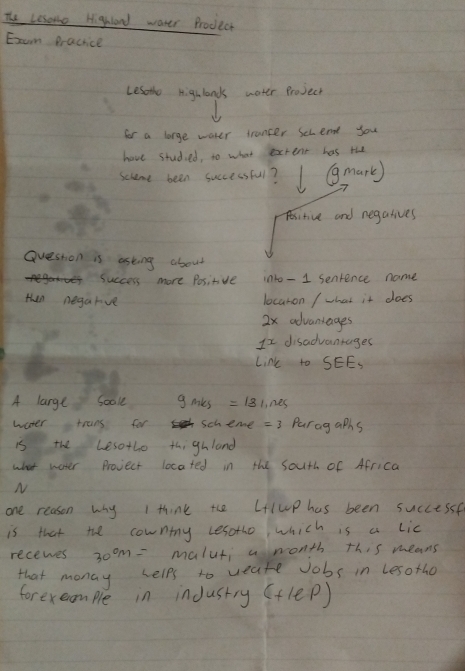 The Lesotho Highland water Project
Exam Practice
Lesotho Highlands water Project
for a large water transfer scheme you
have studied, to what extent has the
scheme been successful? (9 mark)
Positive and negatives
Question is asking about
negatives success more Positive
then negative
into - 1 sentence name
location / what it does
2x advantages
1x disadvantages
Link to SEEs
A large Scale 9 mks = 13 lines
water trans for scheme = 3 Paragaphs
is the Lesotho Highland
what water Project located in the South of Africa
N
one reason why I think the LHWP has been successf
is that the cowntny Lesotho, which is a Lic
receives 300m = maluti a month this means
that monay helps to create Jobs in Lesotho
forexample in industry (+lep)